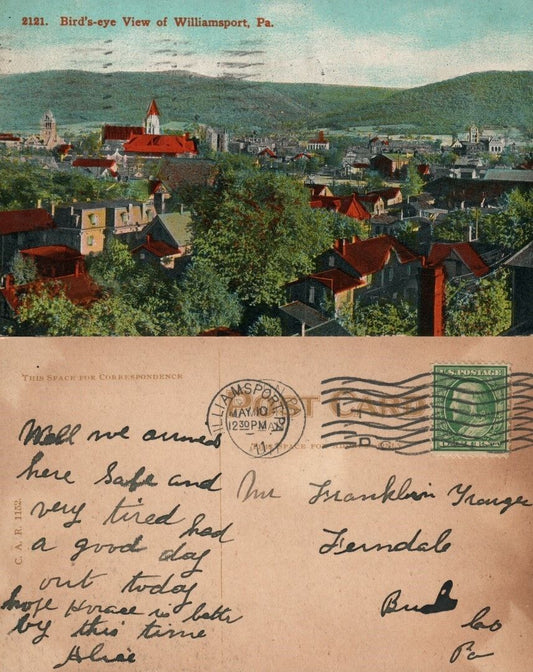 2121. Bird's-eye View of Williamsport, Pa.
THIS SPACE FOR CORRESPONDENCE
POST CARD
WILLIAMSPORT, PA
MAY 10
12 30 PM
11
D
U.S. POSTAGE
C. A. R. 1152.
Well we arrived
here Safe and
very tired had
a good day
out today
hope Horace is better
by this time
Alice
Mr Franklin Trauger
Ferndale
Bucks Co
Pa